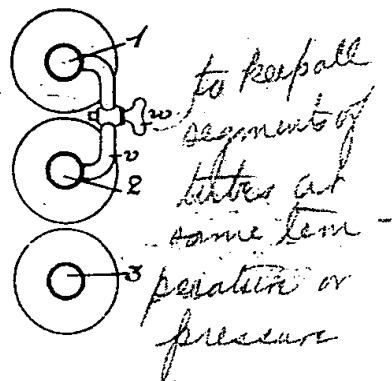 1
w
to keep all
segments of
v
tubes at
2
same tem-
3
perature or
pressure